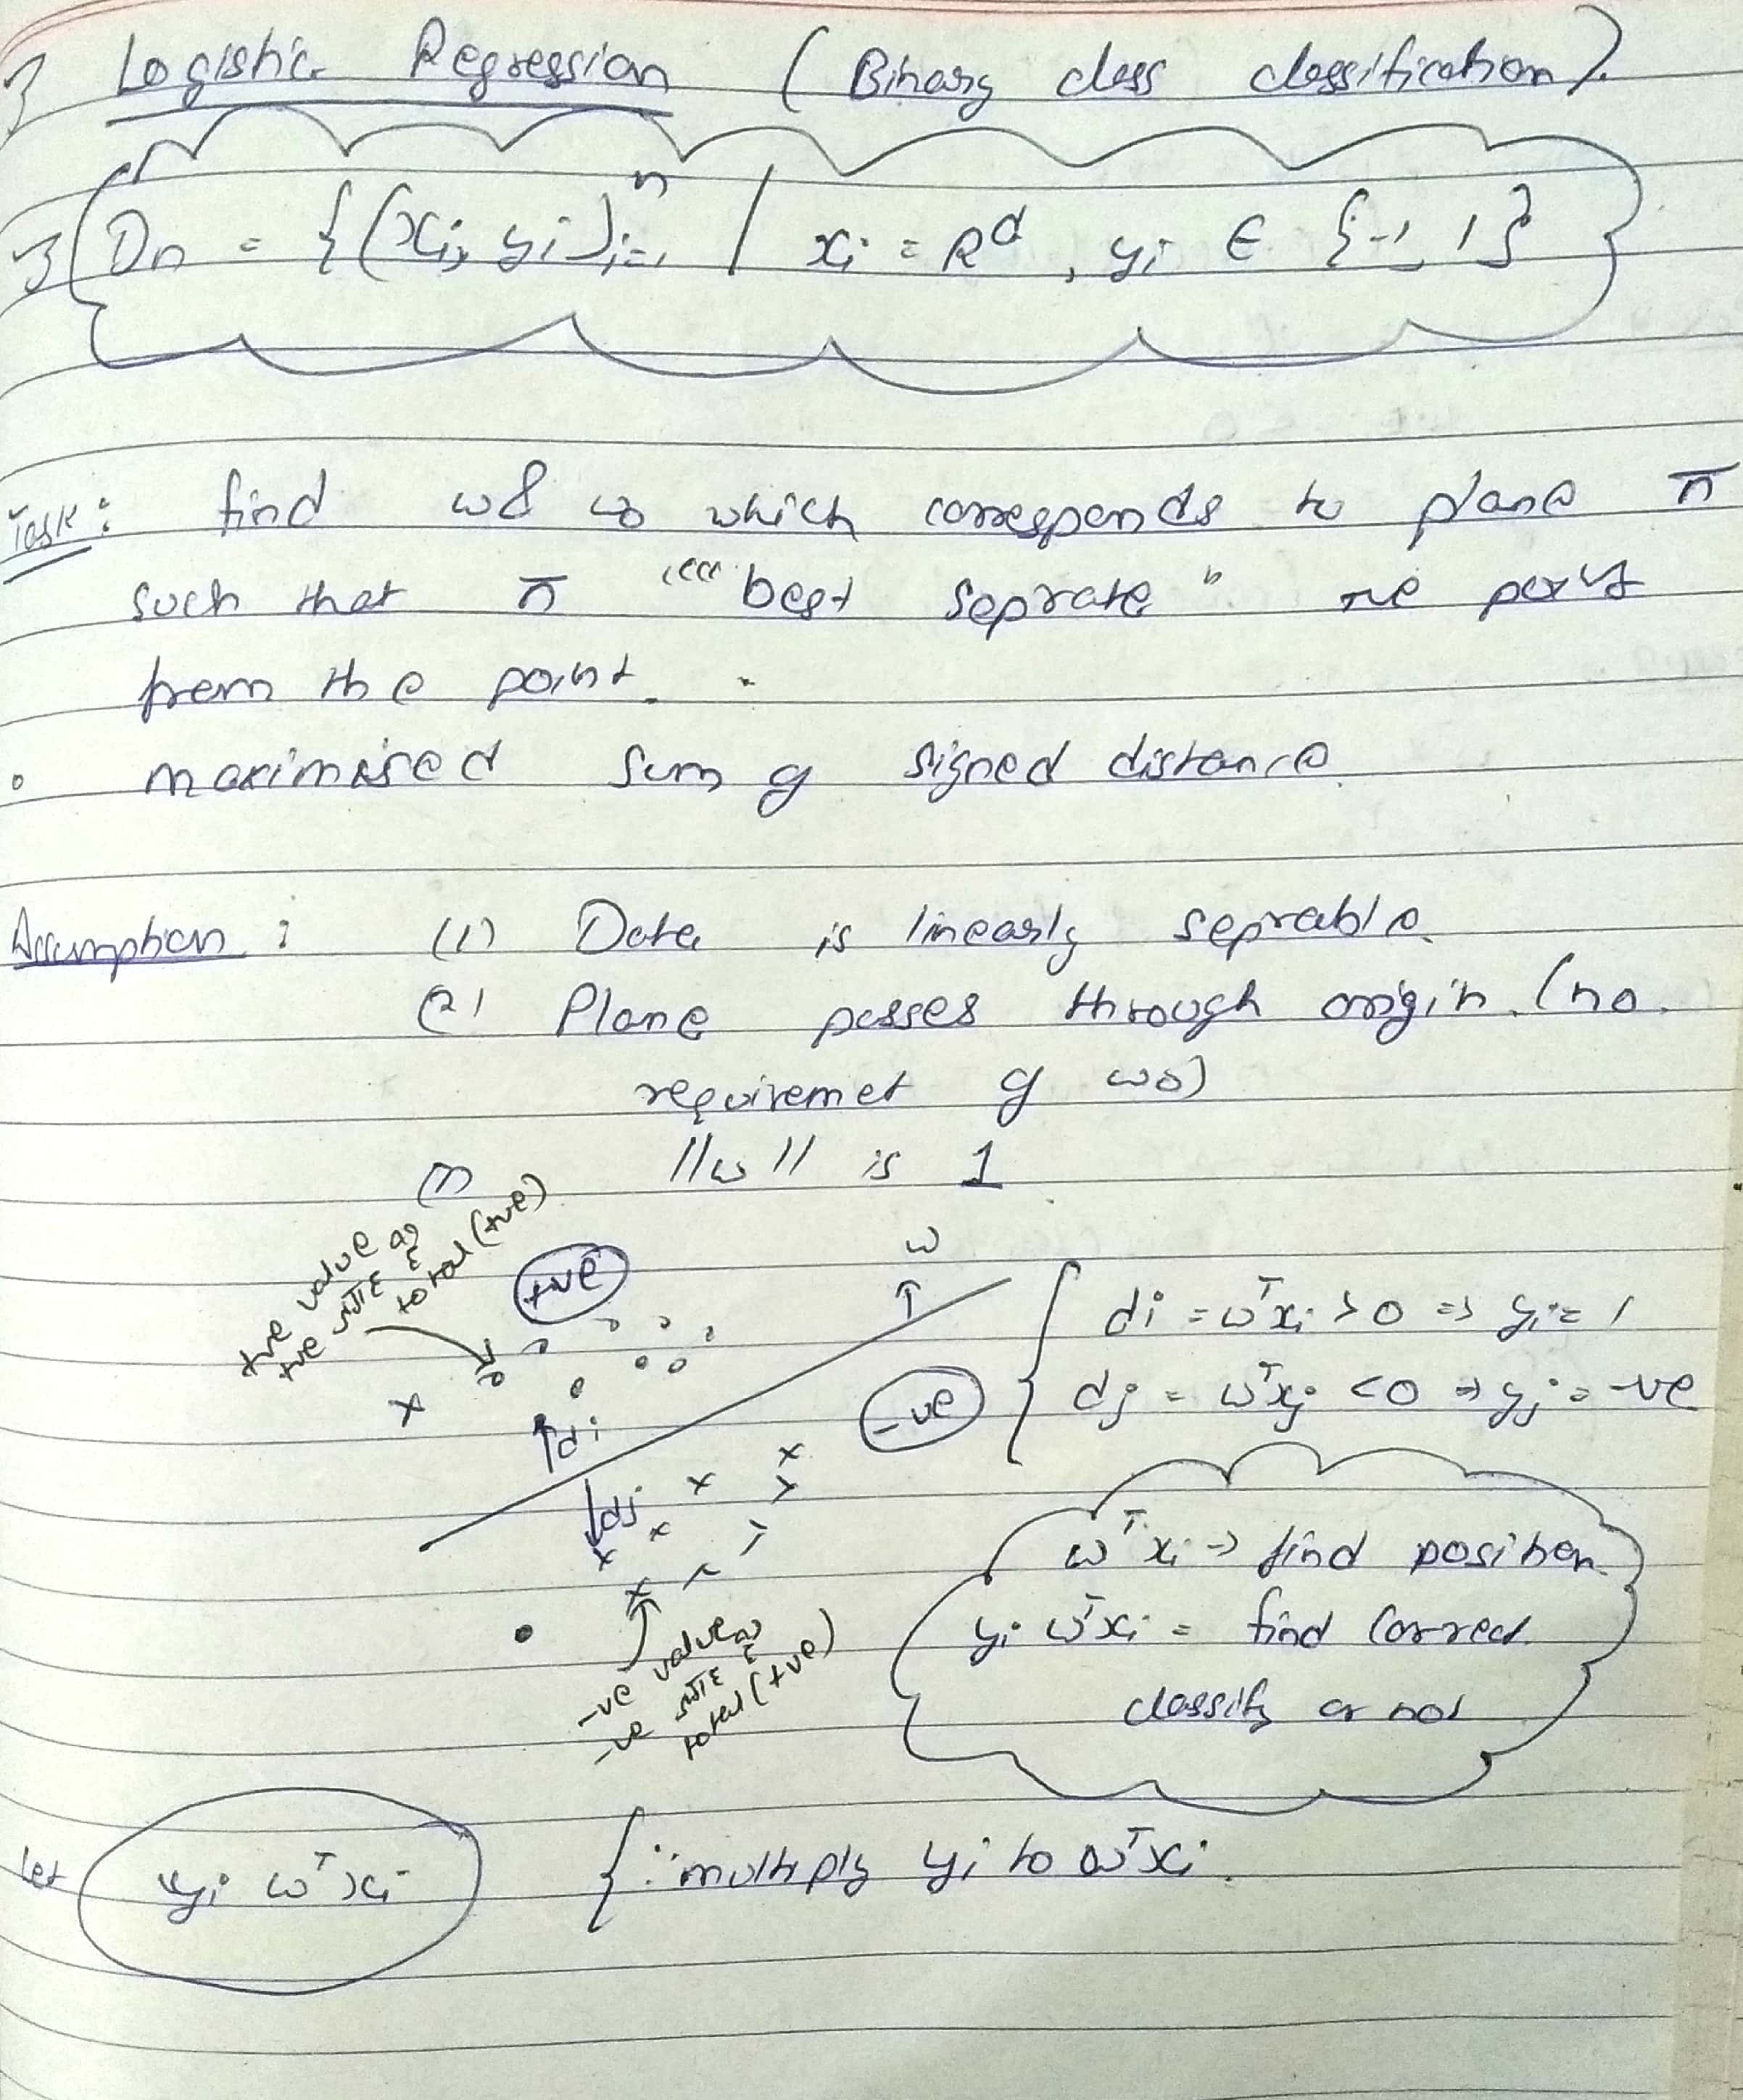 Logistic Regression (Binary class classification).
Dn = {(xi, yi)ⁿi=1 / xi = R^d, yi ∈ {-1, 1}
Task: find w & w0 which corresponds to plane π
such that π "best seprate" -ve points
from the point.
• maximised sum of signed distance
Assumption: (1) Data is linearly seprable.
(2) Plane passes through origin. (no
requiremet of w0)
||w|| is 1
+ve value as
+ve side &
total (+ve)
+ve
w
di = wᵀxi > 0 => yi = 1
-ve
dj = wᵀxj < 0 => yj = -ve
di
dj
wᵀxi -> find position
yi wᵀxi = find correct
classify or not
-ve value as
-ve side &
total (+ve)
let yi wᵀxi { ∵ multiply yi to wᵀxi.